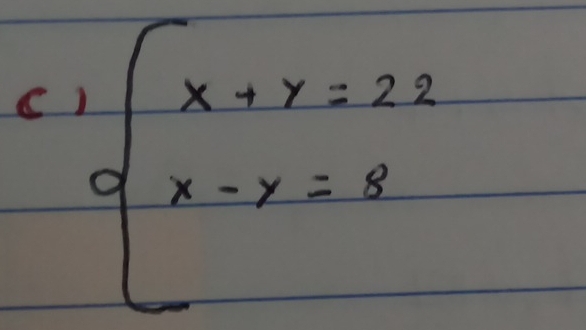 c) x + y = 22
x - y = 8